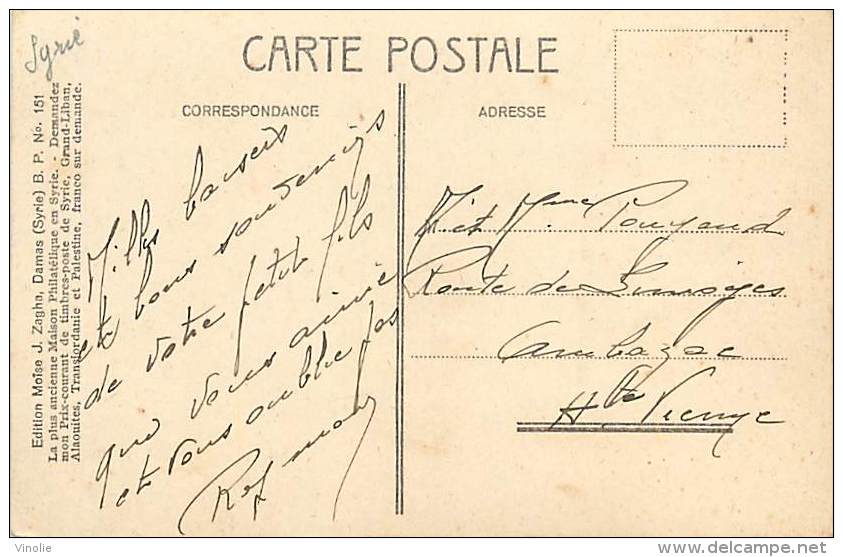 Syrie
CARTE POSTALE
CORRESPONDANCE
ADRESSE
Edition Moïse J. Zagha, Damas (Syrie) B. P. No. 151
La plus ancienne Maison Philatélique en Syrie. - Demandez
mon Prix-courant de timbres-poste de Syrie, Grand-Liban,
Alaouites, Transjordanie et Palestine, franco sur demande.
Mille baisers
et bons souvenirs
de votre petit fils
qui vous aime
et vous oublie pas
M et Mme Pouyaud
Route de Limoges
Ambazac
Hte Vienne
Vinolie
www.delcampe.net